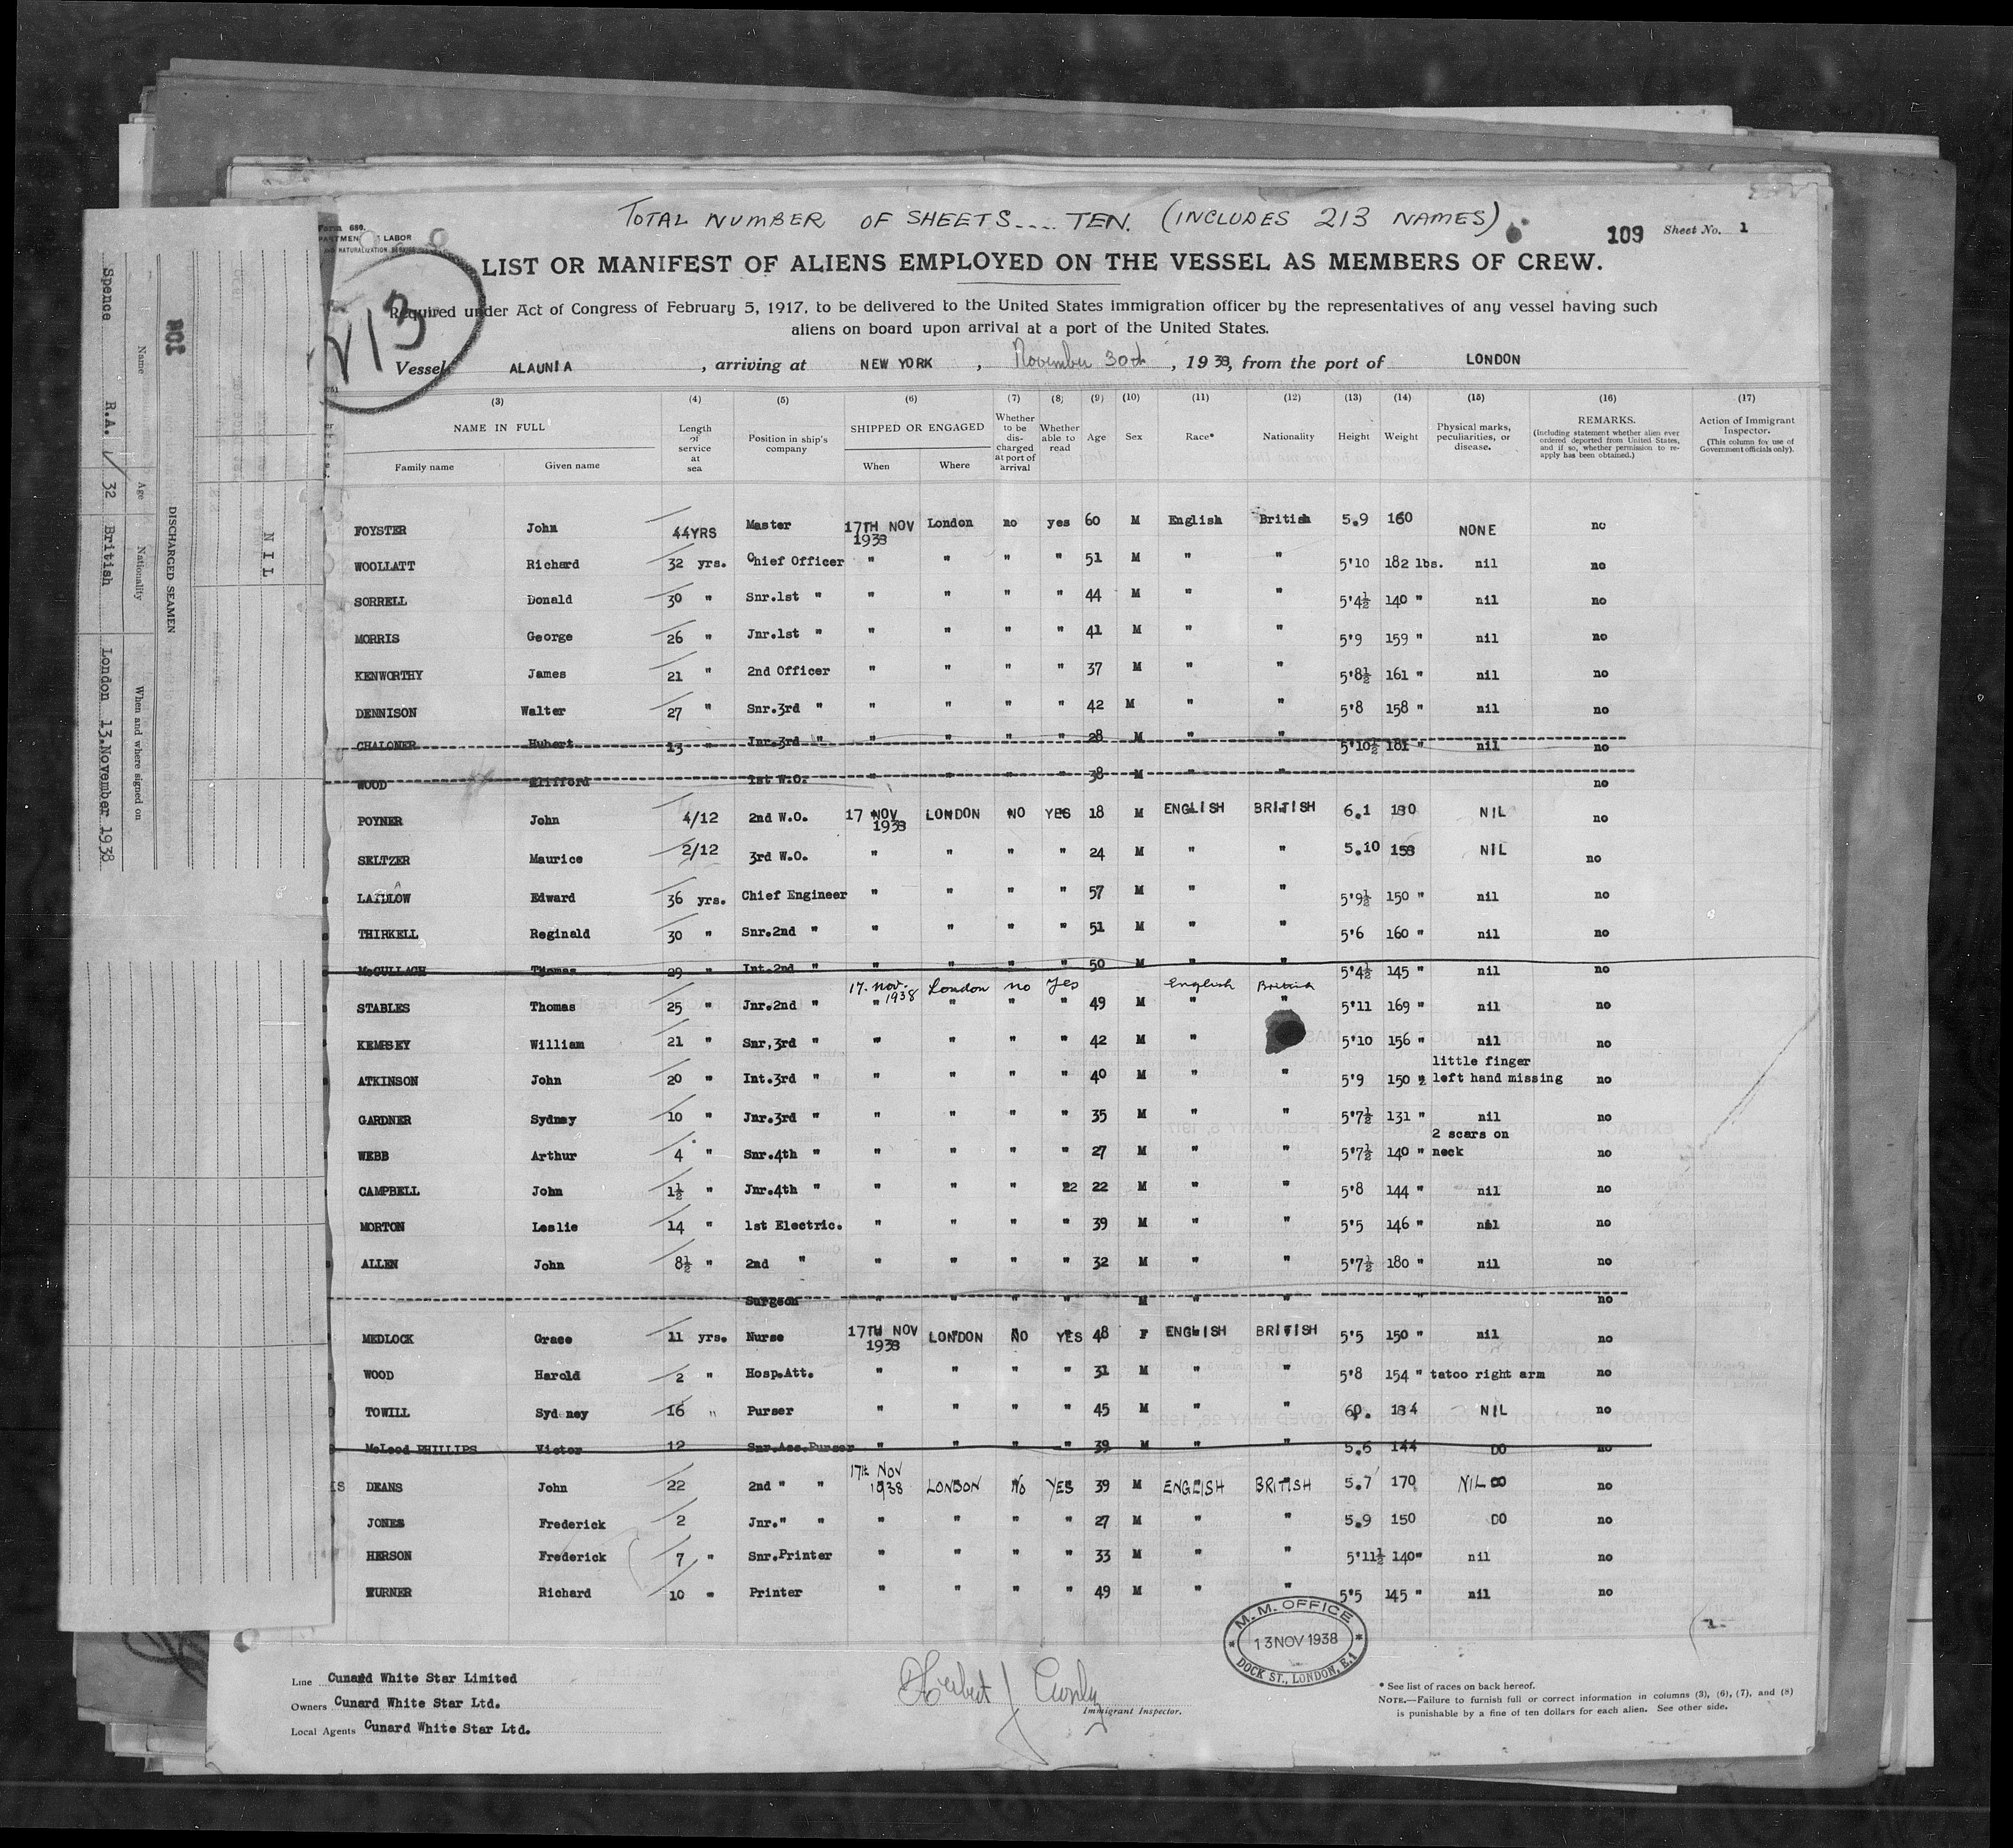 TOTAL NUMBER OF SHEETS.... TEN. (INCLUDES 213 NAMES)
Form 680.
LABOR
109 Sheet No. 1
LIST OR MANIFEST OF ALIENS EMPLOYED ON THE VESSEL AS MEMBERS OF CREW.
213
Required under Act of Congress of February 5, 1917, to be delivered to the United States immigration officer by the representatives of any vessel having such
aliens on board upon arrival at a port of the United States.
Vessel ALAUNIA, arriving at NEW YORK, November 30th, 1938, from the port of LONDON
(3) (4) (5) (6) (7) (8) (9) (10) (11) (12) (13) (14) (15) (16) (17)
NAME IN FULL Length of service at sea Position in ship's company SHIPPED OR ENGAGED Whether to be discharged at port of arrival Whether able to read Age Sex Race* Nationality Height Weight Physical marks, peculiarities, or disease. REMARKS. (Including statement whether alien ever ordered deported from United States, and if so, whether permission to re-apply has been obtained.) Action of Immigrant Inspector. (This column for use of Government officials only).
Family name Given name When Where
FOYSTER John 44YRS Master 17TH NOV 1938 London no yes 60 M English British 5.9 160 NONE no
WOOLLATT Richard 32 yrs. Chief Officer " " " " 51 M " " 5'10 182 lbs. nil no
SORRELL Donald 30 " Snr.1st " " " " " 44 M " " 5'4½ 140 " nil no
MORRIS George 26 " Jnr.1st " " " " " 41 M " " 5'9 159 " nil no
KENWORTHY James 21 " 2nd Officer " " " " 37 M " " 5'8½ 161 " nil no
DENNISON Walter 27 " Snr.3rd " " " " " 42 M " " 5'8 158 " nil no
CHALONER Hubert 13 " Jnr.3rd " " " " " 28 M " " 5'10½ 181 " nil no
WOOD Clifford 1st W.O. " " " " 38 M " " no
POYNER John 4/12 2nd W.O. 17 NOV 1938 LONDON NO YES 18 M ENGLISH BRITISH 6.1 180 NIL no
SELTZER Maurice 2/12 3rd W.O. " " " " 24 M " " 5.10 158 NIL no
LAIDLOW Edward 36 yrs. Chief Engineer " " " " 57 M " " 5'9½ 150 " nil no
THIRKELL Reginald 30 " Snr.2nd " " " " " 51 M " " 5'6 160 " nil no
McCULLAGH Thomas 29 " Int.2nd " " " " " 50 M " " 5'4½ 145 " nil no
17. Nov. 1938 London no yes English British
STABLES Thomas 25 " Jnr.2nd " " " " " 49 M " " 5'11 169 " nil no
KEMPSEY William 21 " Snr,3rd " " " " " 42 M " 5'10 156 " nil no
ATKINSON John 20 " Int.3rd " " " " " 40 M " " 5'9 150 " little finger left hand missing no
GARDNER Sydney 10 " Jnr.3rd " " " " " 35 M " " 5'7½ 131 " nil no
WEBB Arthur 4 " Snr.4th " " " " " 27 M " " 5'7½ 140 " 2 scars on neck no
CAMPBELL John 1½ " Jnr.4th " " " " 22 22 M " " 5'8 144 " nil no
MORTON Leslie 14 " 1st Electric. " " " " 39 M " " 5'5 146 " nil no
ALLEN John 8½ " 2nd " " " " " 32 M " " 5'7½ 180 " nil no
Surgeon " " " " M " " " no
MEDLOCK Grace 11 yrs. Nurse 17TH NOV 1938 LONDON NO YES 48 F ENGLISH BRITISH 5'5 150 " nil no
WOOD Harold 2 " Hosp.Att. " " " " 31 M " " 5'8 154 " tatoo right arm no
TOWILL Sydney 16 " Purser " " " " 45 M " " 60. 184 NIL no
McLeod PHILLIPS Victor 12 Snr.Ass.Purser " " " " 39 M " " 5.6 144 DO no
DEANS John 22 2nd " " 17th NOV 1938 LONDON NO YES 39 M ENGLISH BRITISH 5.7 170 NIL DO no
JONES Frederick 2 Jnr." " " " " " 27 M " " 5.9 150 DO no
HERSON Frederick 7 " Snr.Printer " " " " 33 M " " 5'11½ 140" nil no
TURNER Richard 10 " Printer " " " " 49 M " " 5'5 145 " nil no
M.M. OFFICE
13 NOV 1938
DOCK ST., LONDON, E.1
Line Cunard White Star Limited
Owners Cunard White Star Ltd.
Local Agents Cunard White Star Ltd.
Immigrant Inspector.
* See list of races on back hereof.
NOTE.—Failure to furnish full or correct information in columns (3), (6), (7), and (8)
is punishable by a fine of ten dollars for each alien. See other side.
108
DISCHARGED SEAMEN
Name Age Nationality When and where signed on
Spence R.A. 32 British London 13.November 1938
NIL